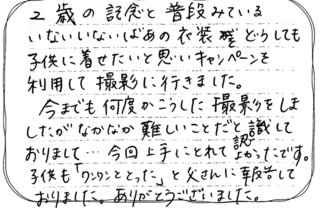 2歳の記念と普段みている
いないいないばあの衣装をどうしても
子供に着せたいと思いキャンペーンを
利用して撮影に行きました。
今までも何度かこうした撮影をしま
したがなかなか難しいことだと認識して
おりまして…今回上手にとれてよかったです。
子供も「ワンワンととった」と父さんに報告して
おりました。ありがとうございました。